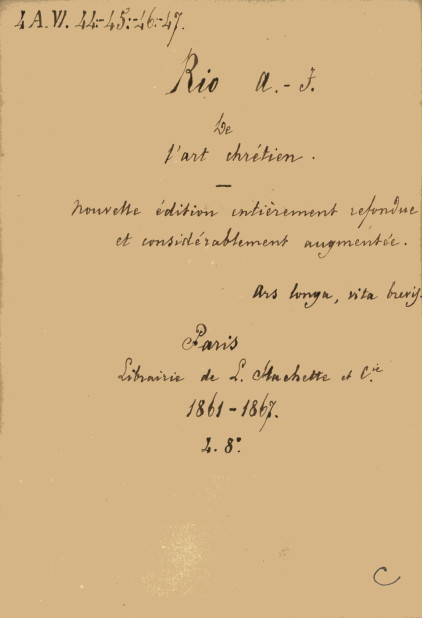 4 A.VI. 44-45-46-47.
Rio A.-F.
De
l'art chrétien.
—
Nouvelle édition entièrement refondue
et considérablement augmentée.
Ars longa, vita brevis.
Paris
Librairie de L. Hachette et Cie.
1861-1867.
4. 8º.
C